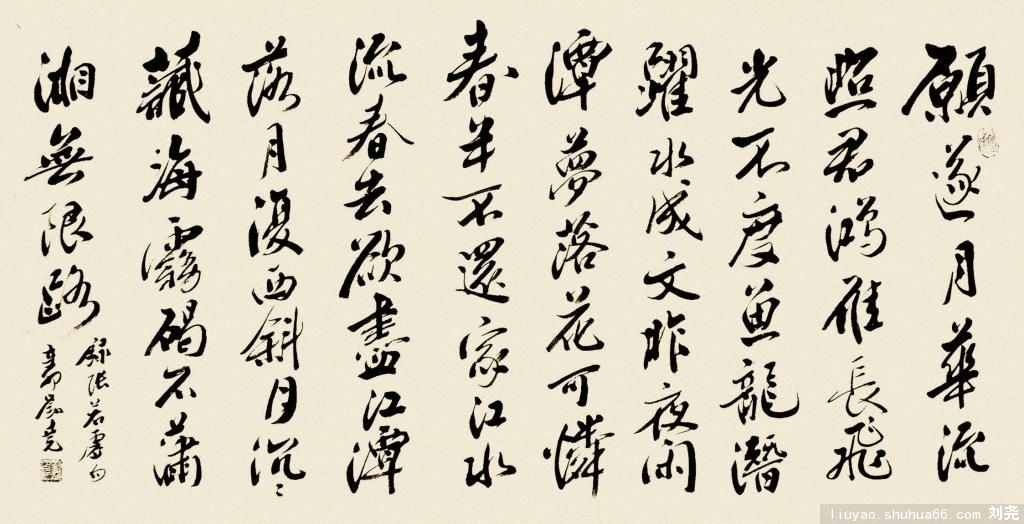 願逐月華流
照君鴻雁長飛
光不度魚龍潛
躍水成文昨夜閑
潭夢落花可憐
春半不還家江水
流春去欲盡江潭
落月復西斜月沉々
藏海霧碣石瀟
湘無限路
錄張若虛句
辛卯劉堯
liuyao.shuhua66.com 刘尧